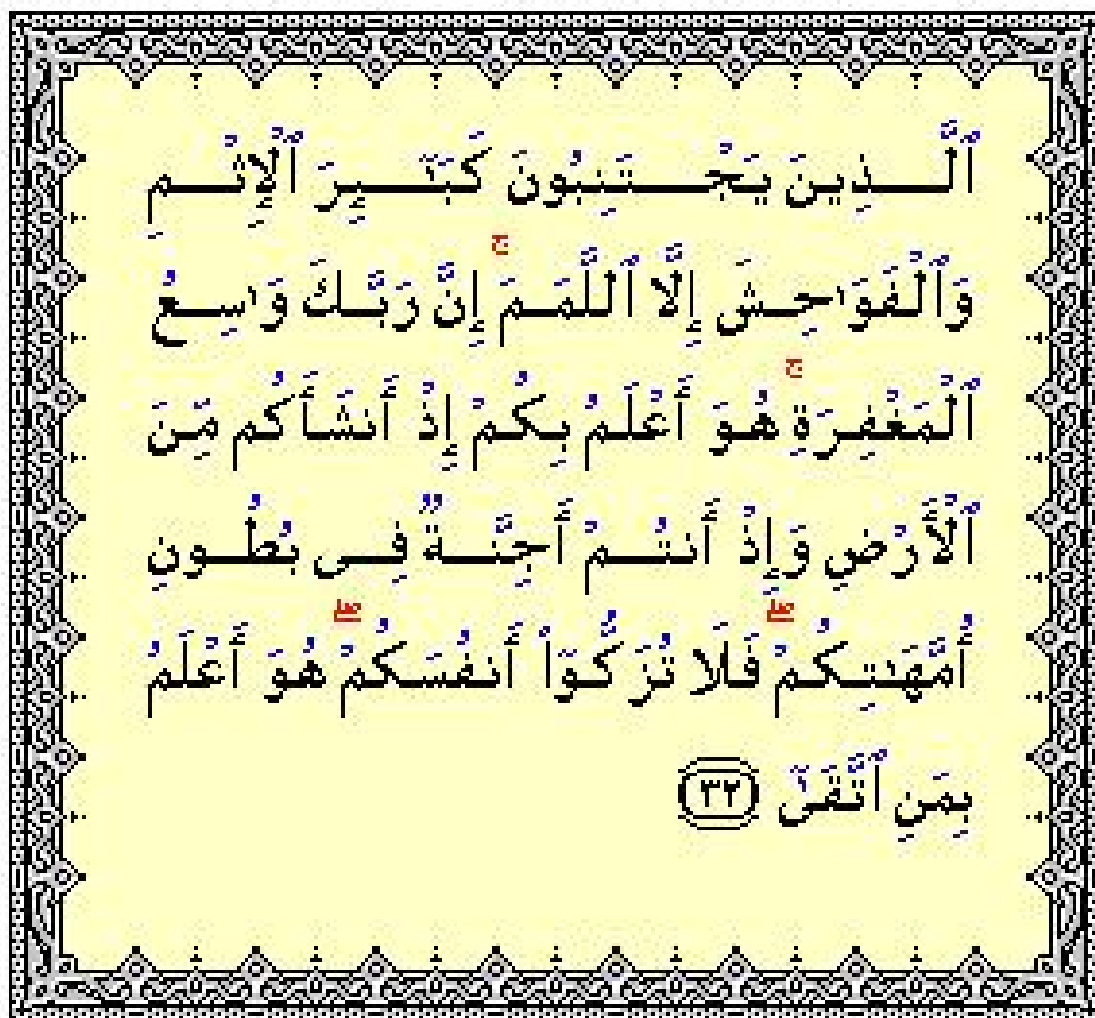 ٱلَّذِينَ يَجْتَنِبُونَ كَبَٰٓئِرَ ٱلْإِثْمِ
وَٱلْفَوَٰحِشَ إِلَّا ٱللَّمَمَ ۚ إِنَّ رَبَّكَ وَٰسِعُ
ٱلْمَغْفِرَةِ ۚ هُوَ أَعْلَمُ بِكُمْ إِذْ أَنشَأَكُم مِّنَ
ٱلْأَرْضِ وَإِذْ أَنتُمْ أَجِنَّةٌ فِى بُطُونِ
أُمَّهَٰتِكُمْ ۖ فَلَا تُزَكُّوٓا۟ أَنفُسَكُمْ ۖ هُوَ أَعْلَمُ
بِمَنِ ٱتَّقَىٰٓ ٣٢